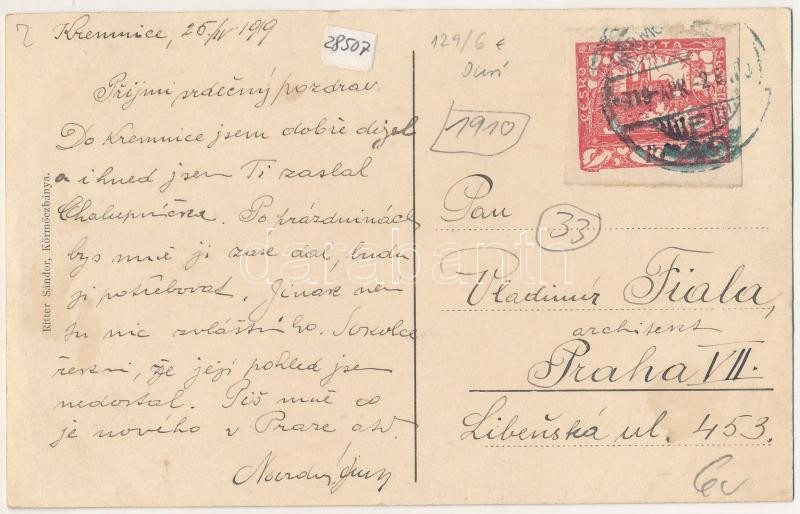 Kremnice, 25/IV 1919
28507
129/6 €
1910
33
Přijmi srdečný pozdrav.
Do Kremnice jsem dobře dojel
a ihned jsem Ti zaslal
Chalupníčka. Po prázdninách
bys mně ji zase dal, budu
ji potřebovat. Jinak není
tu nic zvláštního. Sokolce
řekni, že její pohled jsem
nedostal. Piš mně co
je nového v Praze atd.
Pan
Vladimír Fiala,
architekt
Praha VII.
Libeňská ul. 453.
Ritter Sándor, Körmöczbánya.
darabanth